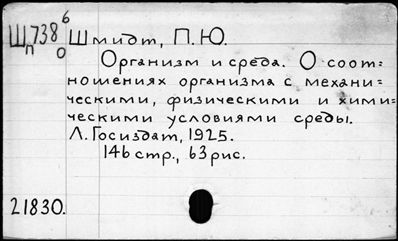 Ш738 6 Шмидт, П.Ю.
п 0
Организм и среда. О соот=
ношениях организма с механи=
ческими, физическими и хими=
ческими условиями среды.
Л. Госиздат, 1925.
146 стр., 63 рис.
21830.